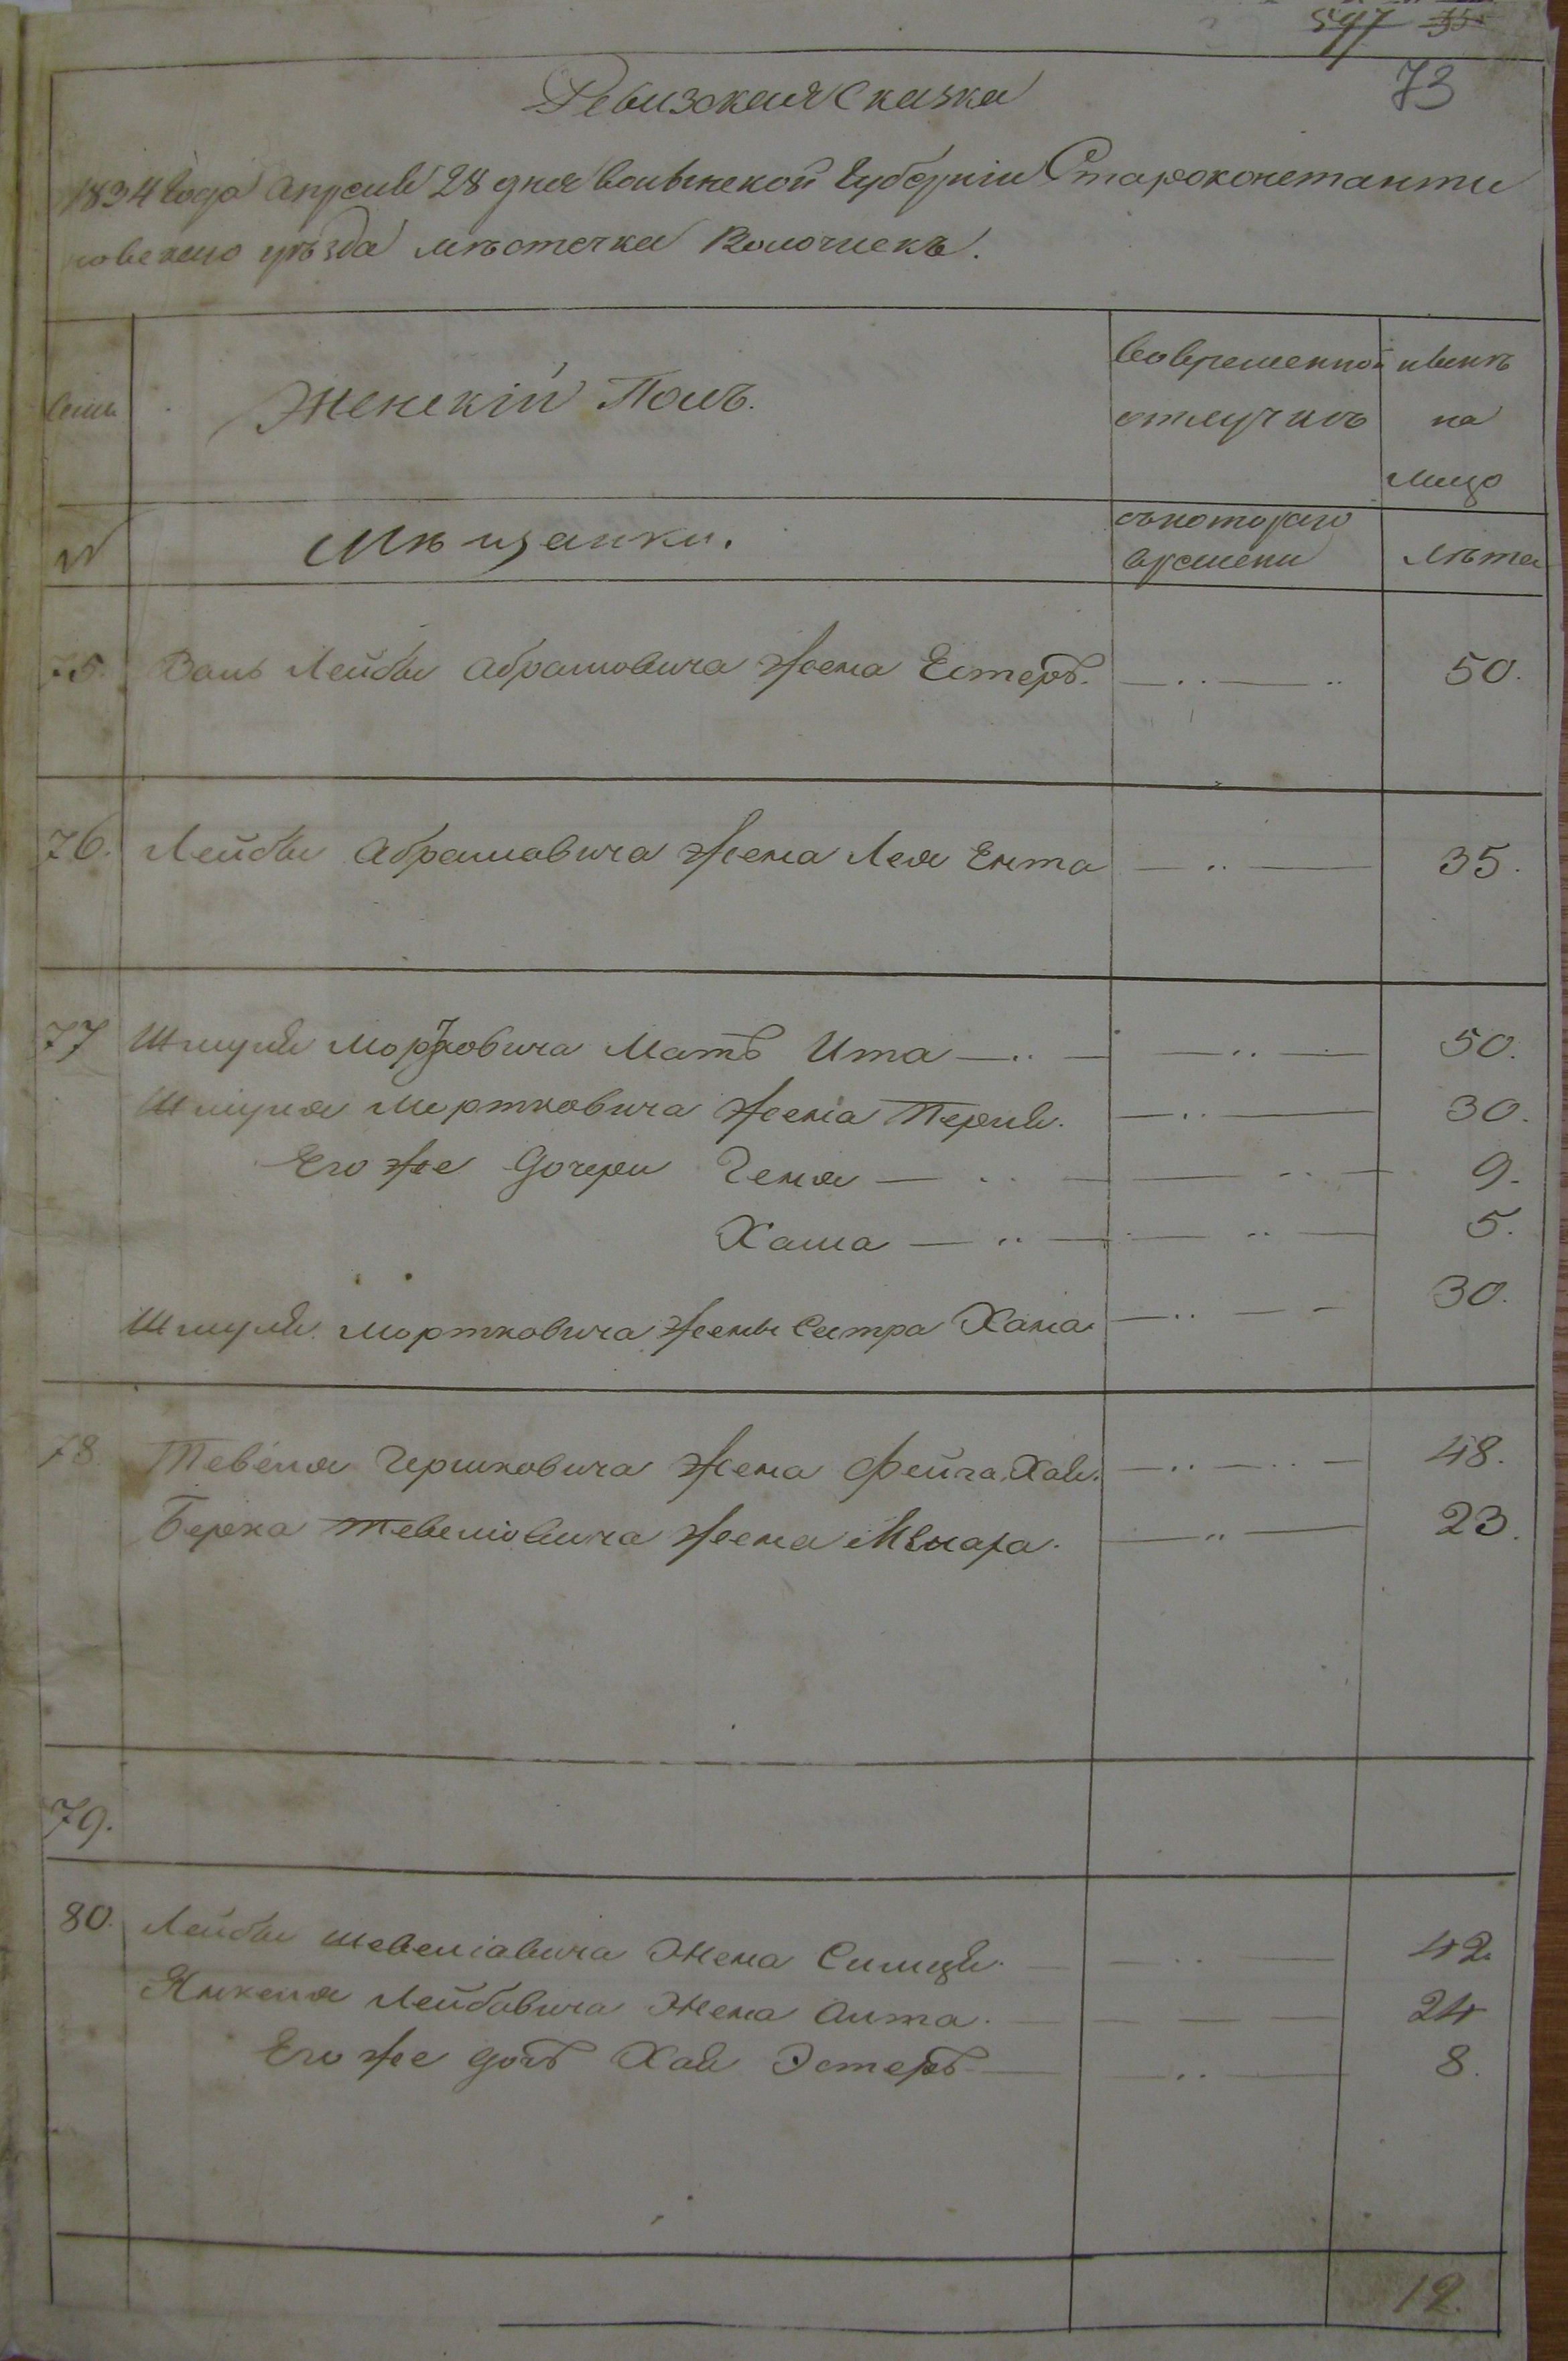 597 35
73
Ревизская Сказка
1834 года Апреля 28 дня Волынской Губерніи Староконстанти
новскаго уѣзда мѣстечка Волочискъ.
Семьи
Женскій Полъ.
Вовременной отлучкѣ
нынѣ на лицо
№
Мѣщанки.
съкотораго времени
Лѣта
75. Лейбы Абрамовича Жена Естеръ. 50.
76. Лейбы Абрамовича Жена Лея Ента 35.
77 Шмуля Мордковича Мать Ита 50.
Шмуля Мортковича Жена Перля. 30.
Его же Дочери Геня 9.
Хама 5.
Шмуля Мортковича Жены Сестра Хана. 30.
78. Тевеля Гершковича Жена Фейга Хая. 48.
Берка Тевелiовича Жена 23.
79.
80. Лейбы шевелiавича Жена Симця. 42.
Янкеля Лейбовича Жена Аита. 24
Его же дочь Хая Эстерь 8.
12.